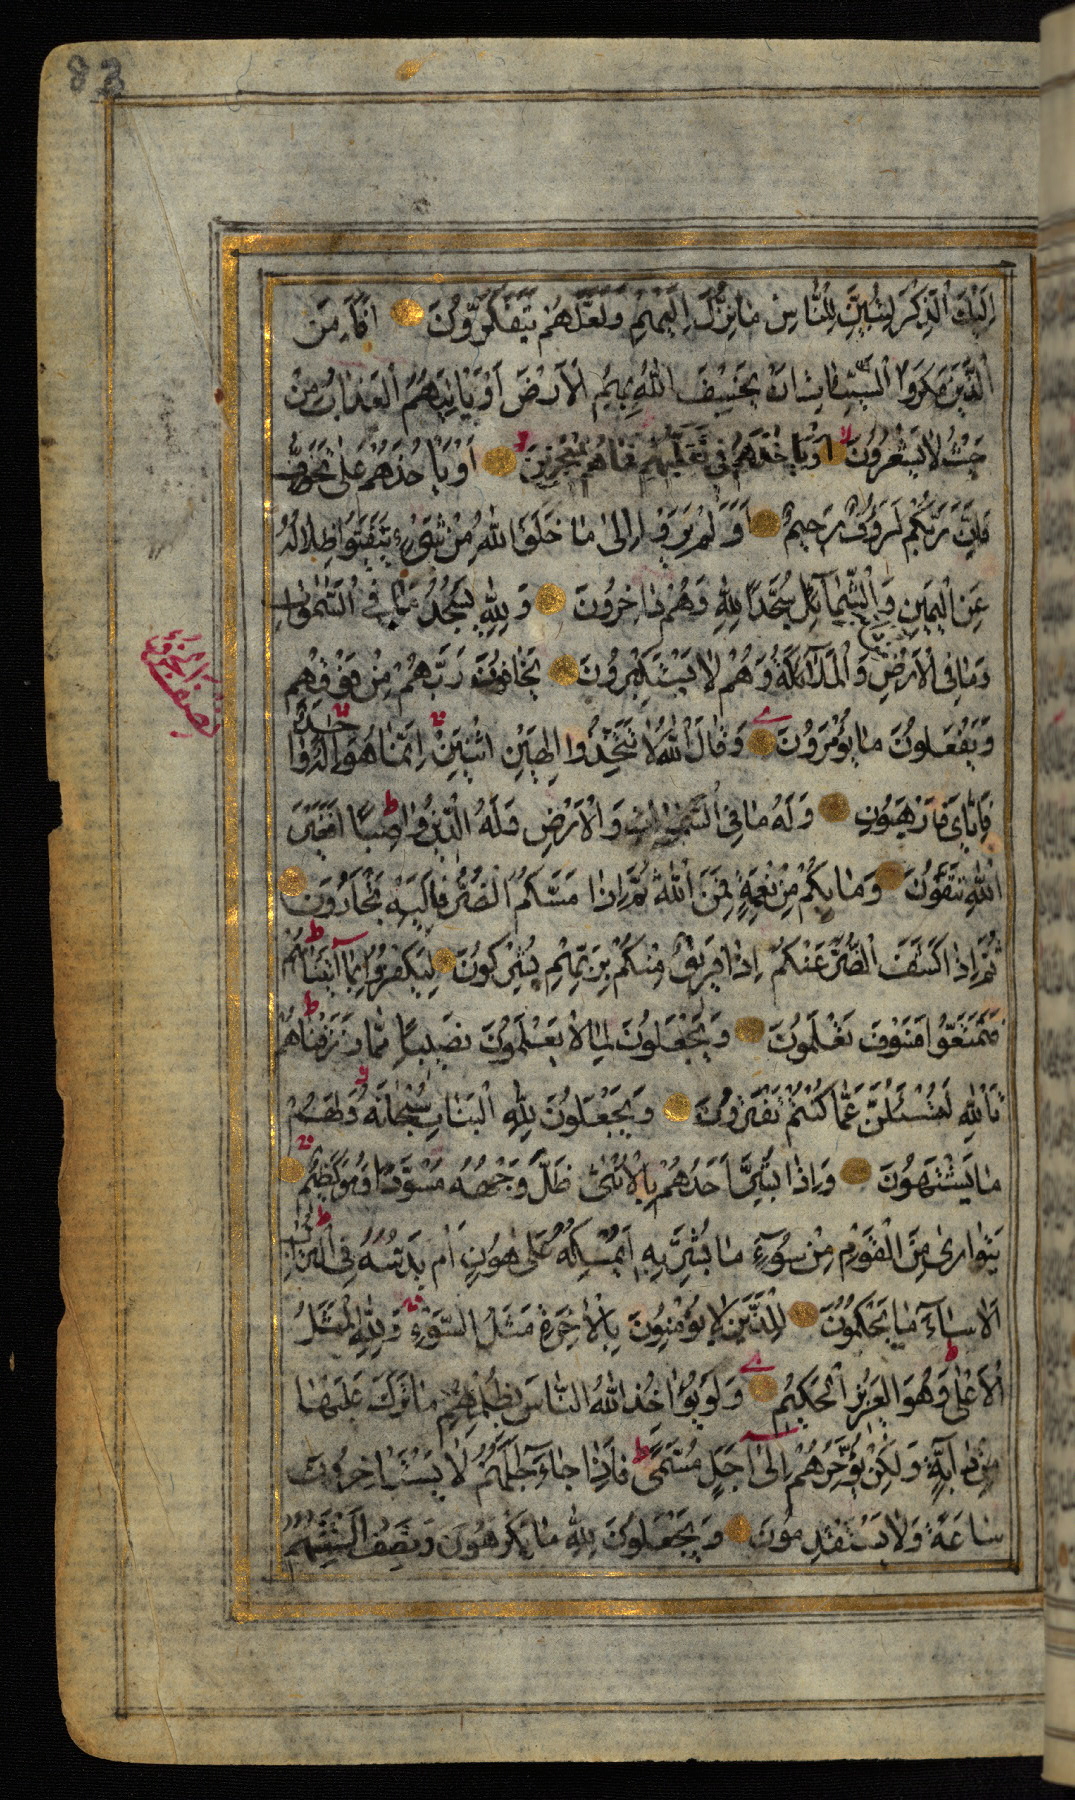 83
اِلَيْكَ الذِّكْرَ لِتُبَيِّنَ لِلنَّاسِ مَا نُزِّلَ اِلَيْهِمْ وَلَعَلَّهُمْ يَتَفَكَّرُونَ اَفَاَمِنَ
الَّذِينَ مَكَرُوا السَّيِّئَاتِ اَنْ يَخْسِفَ اللّٰهُ بِهِمُ الْاَرْضَ اَوْ يَاْتِيَهُمُ الْعَذَابُ مِنْ
حَيْثُ لَا يَشْعُرُونَ اَوْ يَاْخُذَهُمْ فِي تَقَلُّبِهِمْ فَمَا هُمْ بِمُعْجِزِينَ اَوْ يَاْخُذَهُمْ عَلٰى تَخَوُّفٍ
فَاِنَّ رَبَّكُمْ لَرَؤُفٌ رَحِيمٌ اَوَلَمْ يَرَوْا اِلٰى مَا خَلَقَ اللّٰهُ مِنْ شَيْءٍ يَتَفَيَّؤُا ظِلَالُهُ
عَنِ الْيَمِينِ وَالشَّمَآئِلِ سُجَّدًا لِلّٰهِ وَهُمْ دَاخِرُونَ وَلِلّٰهِ يَسْجُدُ مَا فِي السَّمٰوَاتِ
وَمَا فِي الْاَرْضِ وَالْمَلَآئِكَةُ وَهُمْ لَا يَسْتَكْبِرُونَ يَخَافُونَ رَبَّهُمْ مِنْ فَوْقِهِمْ
نصف الجزء
وَيَفْعَلُونَ مَا يُؤْمَرُونَ وَقَالَ اللّٰهُ لَا تَتَّخِذُوا اِلٰهَيْنِ اثْنَيْنِ اِنَّمَا هُوَ اِلٰهٌ وَاحِدٌ
فَاِيَّايَ فَارْهَبُونِ وَلَهُ مَا فِي السَّمٰوَاتِ وَالْاَرْضِ وَلَهُ الدِّينُ وَاصِبًا اَفَغَيْرَ
اللّٰهِ تَتَّقُونَ وَمَا بِكُمْ مِنْ نِعْمَةٍ فَمِنَ اللّٰهِ ثُمَّ اِذَا مَسَّكُمُ الضُّرُّ فَاِلَيْهِ تَجْأَرُونَ
ثُمَّ اِذَا كَشَفَ الضُّرَّ عَنْكُمْ اِذَا فَرِيقٌ مِنْكُمْ بِرَبِّهِمْ يُشْرِكُونَ لِيَكْفُرُوا بِمَا آتَيْنَاهُمْ
فَتَمَتَّعُوا فَسَوْفَ تَعْلَمُونَ وَيَجْعَلُونَ لِمَا لَا يَعْلَمُونَ نَصِيبًا مِمَّا رَزَقْنَاهُمْ
تَاللّٰهِ لَتُسْئَلُنَّ عَمَّا كُنْتُمْ تَفْتَرُونَ وَيَجْعَلُونَ لِلّٰهِ الْبَنَاتِ سُبْحَانَهُ وَلَهُمْ
مَا يَشْتَهُونَ وَاِذَا بُشِّرَ اَحَدُهُمْ بِالْاُنْثٰى ظَلَّ وَجْهُهُ مُسْوَدًّا وَهُوَ كَظِيمٌ
يَتَوَارٰى مِنَ الْقَوْمِ مِنْ سُوٓءِ مَا بُشِّرَ بِهِ اَيُمْسِكُهُ عَلٰى هُونٍ اَمْ يَدُسُّهُ فِي التُّرَابِ
اَلَا سَآءَ مَا يَحْكُمُونَ لِلَّذِينَ لَا يُؤْمِنُونَ بِالْاٰخِرَةِ مَثَلُ السَّوْءِ وَلِلّٰهِ الْمَثَلُ
الْاَعْلٰى وَهُوَ الْعَزِيزُ الْحَكِيمُ وَلَوْ يُؤَاخِذُ اللّٰهُ النَّاسَ بِظُلْمِهِمْ مَا تَرَكَ عَلَيْهَا
مِنْ دَآبَّةٍ وَلٰكِنْ يُؤَخِّرُهُمْ اِلٰى اَجَلٍ مُسَمًّى فَاِذَا جَآءَ اَجَلُهُمْ لَا يَسْتَاْخِرُونَ
سَاعَةً وَلَا يَسْتَقْدِمُونَ وَيَجْعَلُونَ لِلّٰهِ مَا يَكْرَهُونَ وَتَصِفُ اَلْسِنَتُهُمُ